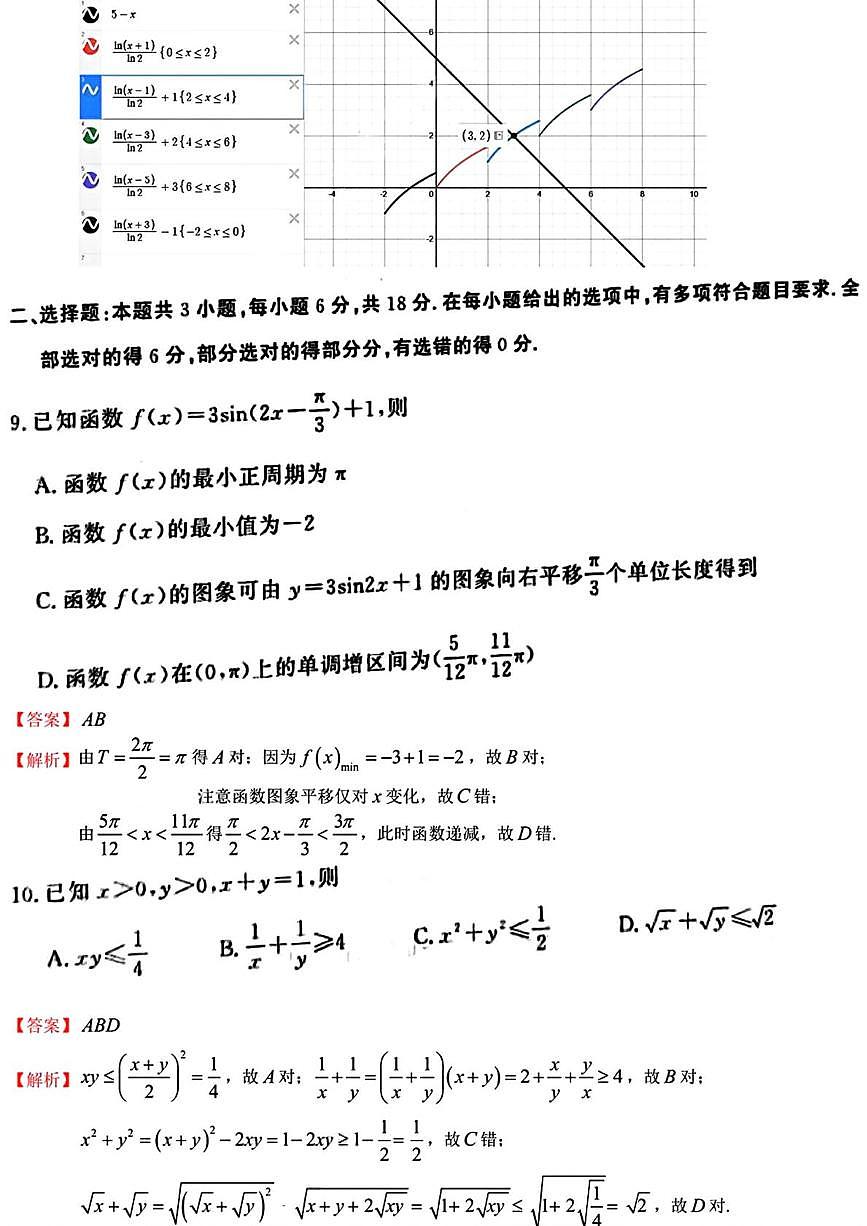 1
5-x
2
ln(x+1)/ln2 {0≤x≤2}
3
ln(x-1)/ln2 +1{2≤x≤4}
4
ln(x-3)/ln2 +2{4≤x≤6}
5
ln(x-5)/ln2 +3{6≤x≤8}
6
ln(x+3)/ln2 -1{-2≤x≤0}
7
6
4
2
(3, 2)
-4 -2 0 2 4 6 8 10
-2
二、选择题:本题共 3 小题,每小题 6 分,共 18 分.在每小题给出的选项中,有多项符合题目要求.全
部选对的得 6 分,部分选对的得部分分,有选错的得 0 分.
9.已知函数 f(x)=3sin(2x-π/3)+1,则
A. 函数 f(x)的最小正周期为 π
B. 函数 f(x)的最小值为-2
C. 函数 f(x)的图象可由 y=3sin2x+1 的图象向右平移π/3个单位长度得到
D. 函数 f(x)在(0,π)上的单调增区间为(5/12π,11/12π)
【答案】AB
【解析】由T=2π/2=π 得A对; 因为f(x)min=-3+1=-2, 故B对;
注意函数图象平移仅对x变化, 故C错;
由5π/12<x<11π/12得π/2<2x-π/3<3π/2, 此时函数递减, 故D错.
10.已知 x>0,y>0,x+y=1,则
A. xy≤1/4 B. 1/x+1/y≥4 C. x²+y²≤1/2 D. √x+√y≤√2
【答案】ABD
【解析】xy≤((x+y)/2)²=1/4, 故A对; 1/x+1/y=(1/x+1/y)(x+y)=2+x/y+y/x≥4, 故B对;
x²+y²=(x+y)²-2xy=1-2xy≥1-1/2=1/2, 故C错;
√x+√y=√((√x+√y)²) √(x+y+2√xy)=√(1+2√xy)≤√(1+2√(1/4))=√2, 故D对.